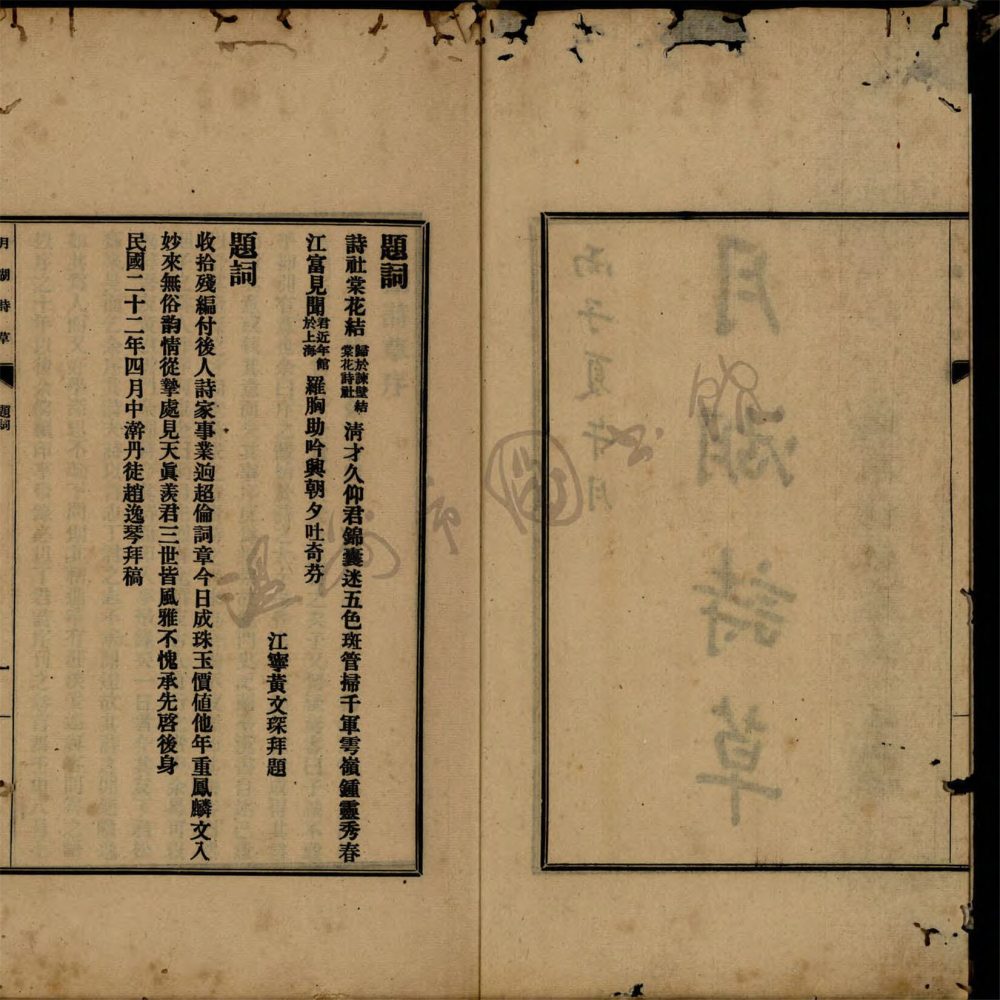 月湖詩草
丙子夏午月
題詞
詩社棠花結歸於諫壁結棠花詩社清才久仰君錦囊迷五色斑管掃千軍雩嶺鍾靈秀春
江富見聞君近年館於上海羅胸助吟興朝夕吐奇芬
江寧黃文琛拜題
題詞
收拾殘編付後人詩家事業逈超倫詞章今日成珠玉價値他年重鳳麟文入
妙來無俗韵情從摯處見天眞羨君三世皆風雅不愧承先啓後身
民國二十二年四月中澣丹徒趙逸琴拜稿
月湖詩草
題詞
一
温州市图书馆